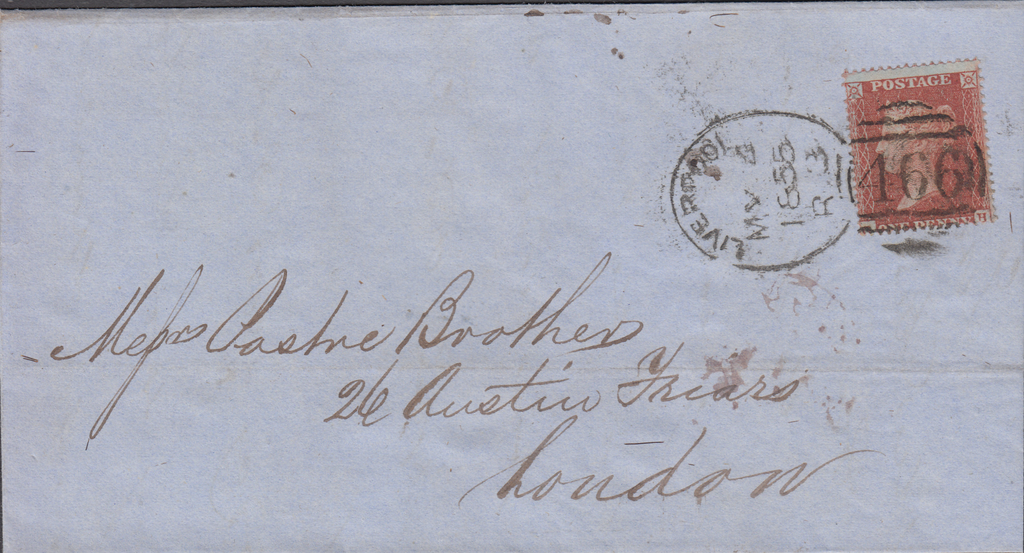 POSTAGE
466
LIVERPOOL
MY
1855
R 3
H
Messrs Pastre Brothers
26 Austin Friars
London